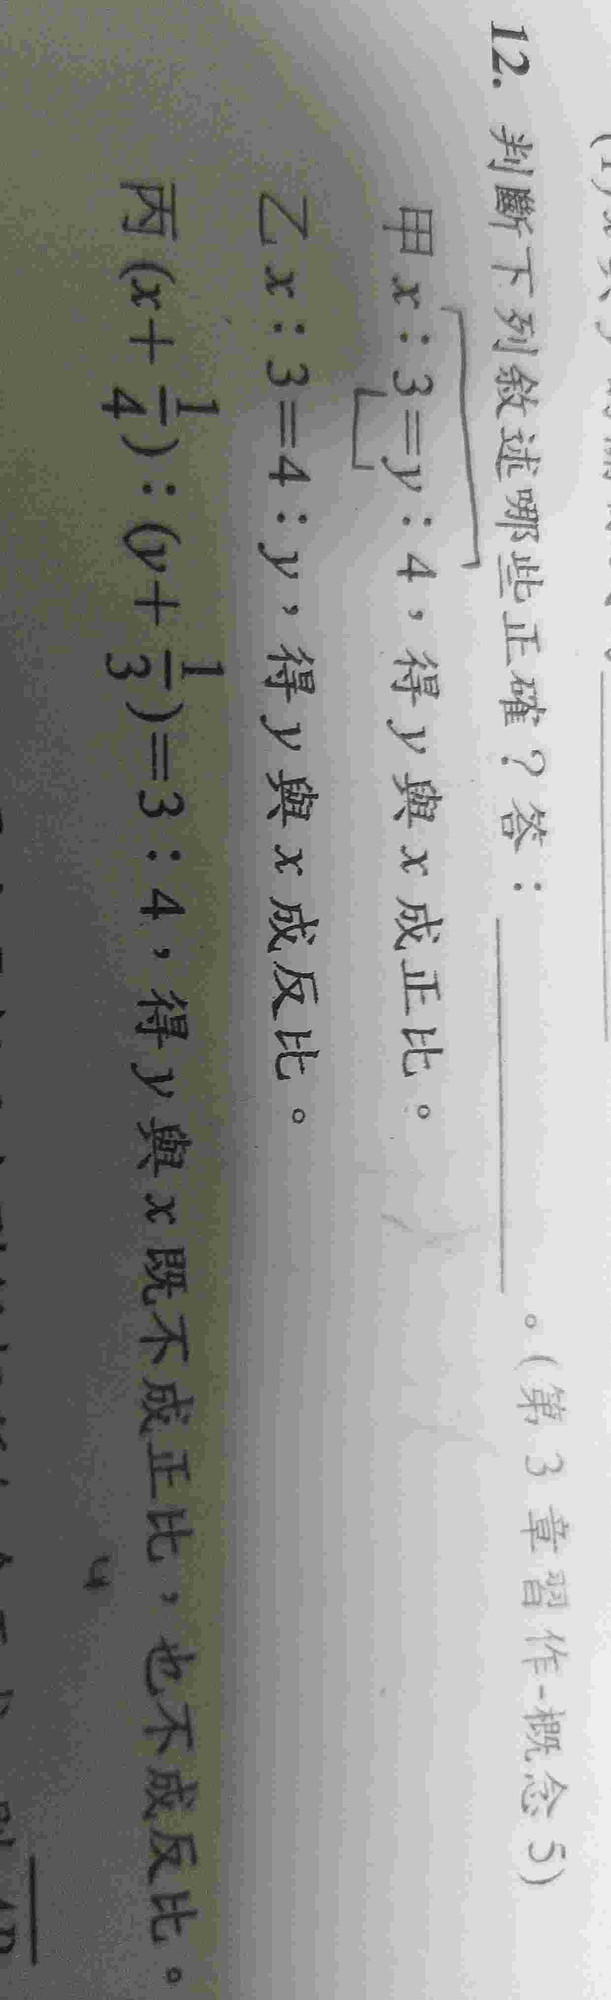 12. 判斷下列敘述哪些正確？答：＿＿＿＿＿＿。(第 3 章習作-概念 5)
甲 x：3＝y：4，得 y 與 x 成正比。
乙 x：3＝4：y，得 y 與 x 成反比。
丙 (x＋1/4)：(y＋1/3)＝3：4，得 y 與 x 既不成正比，也不成反比。